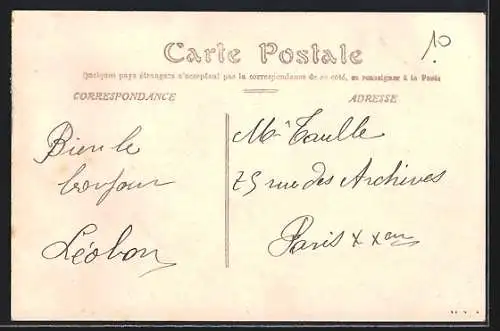 10
Carte Postale
Quelques pays étrangers n'acceptent pas la correspondance de ce côté, se renseigner à la Poste
CORRESPONDANCE
ADRESSE
Bien le
bonjour
Léobon
Mr Taulle
75 rue des Archives
Paris